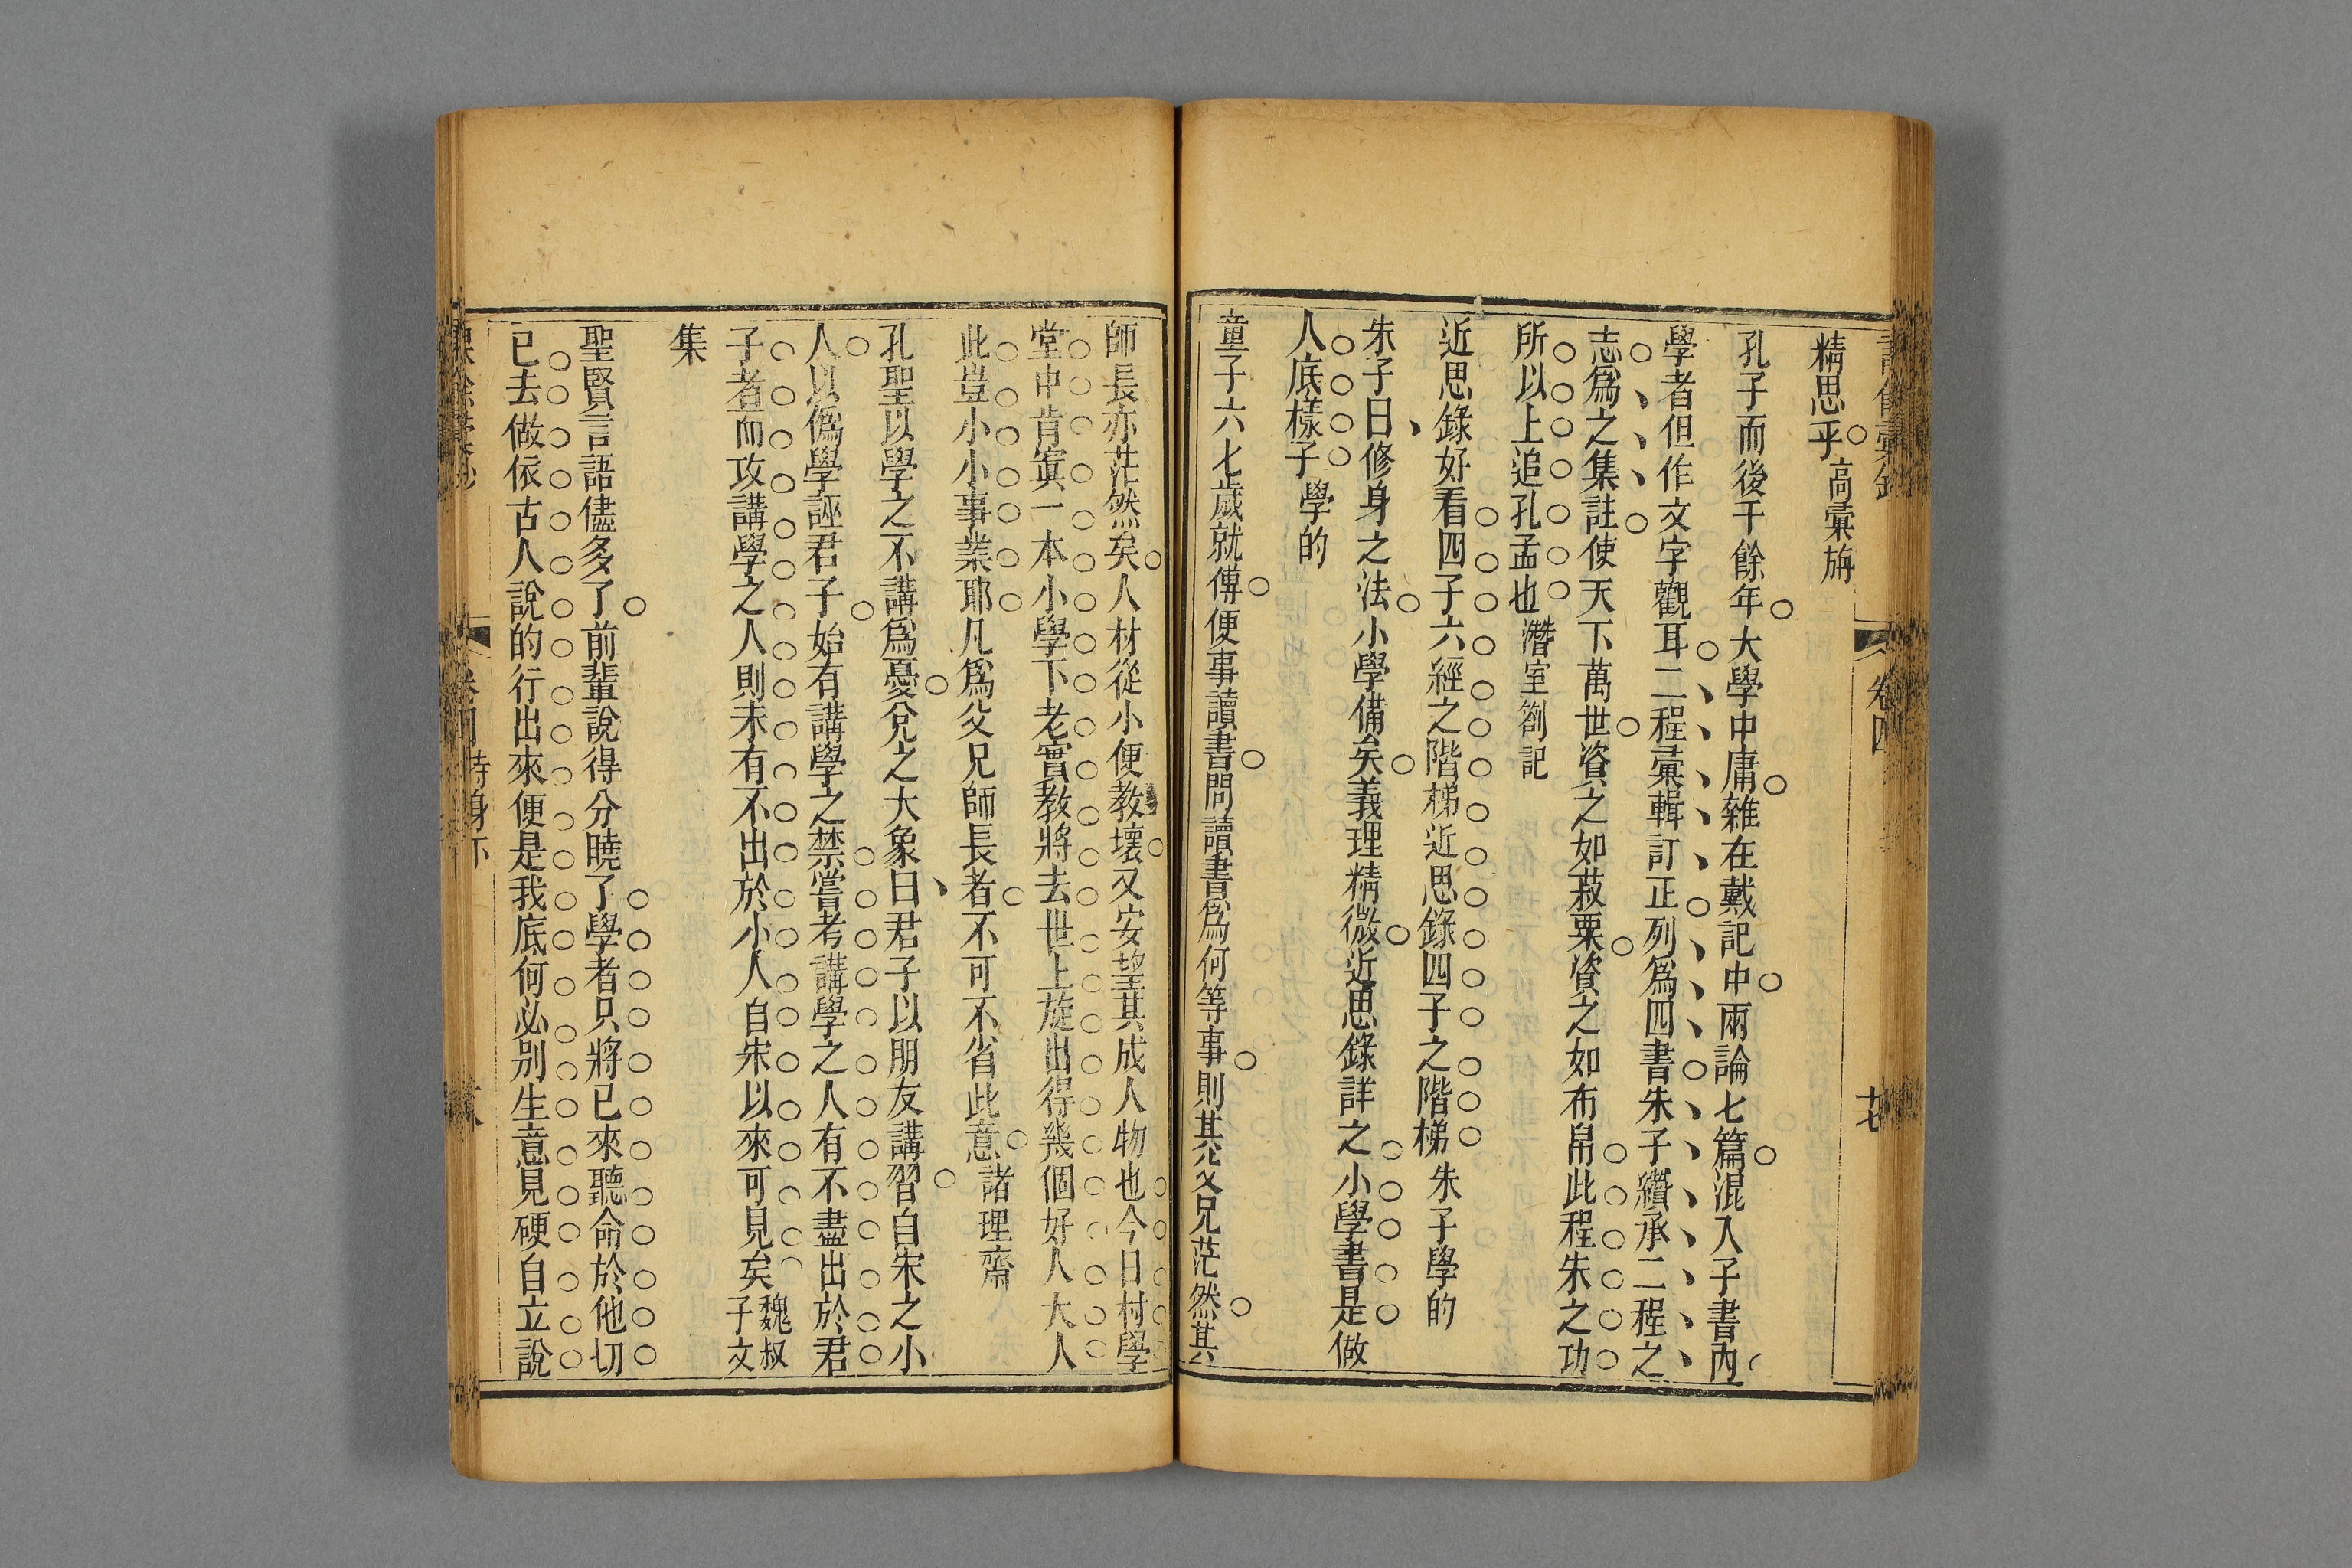 卷四
精思乎高彙旃
孔子而後千餘年大學中庸雜在戴記中兩論七篇混入子書內
學者但作文字觀耳二程彙輯訂正列為四書朱子纘承二程之
志為之集註使天下萬世資之如菽粟資之如布帛此程朱之功
所以上追孔孟也潛室劄記
近思錄好看四子六經之階梯近思錄四子之階梯朱子學的
朱子曰修身之法小學備矣義理精微近思錄詳之小學書是做
人底樣子學的
童子六七歲就傅便事讀書問讀書為何等事則其父兄茫然其
師長亦茫然矣人材從小便教壞又安望其成人物也今日村學
堂中肯寘一本小學下老實教將去世上旋出得幾個好人大人
此豈小小事業耶凡為父兄師長者不可不省此意諸理齋
孔聖以學之不講為憂兌之大象曰君子以朋友講習自宋之小
人以僞學誣君子始有講學之禁嘗考講學之人有不盡出於君
子者而攻講學之人則未有不出於小人自宋以來可見矣魏叔
子文
集
聖賢言語儘多了前輩說得分曉了學者只將已來聽命於他切
已去做依古人說的行出來便是我底何必別生意見硬自立說
卷四